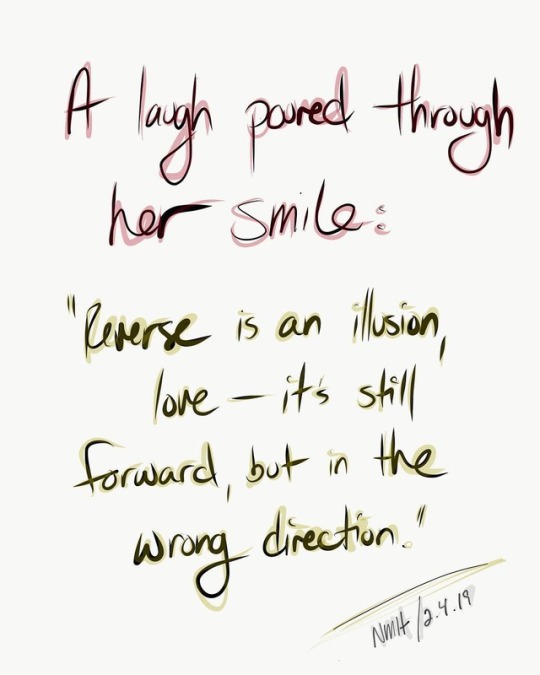 A laugh poured through
her smile:
"Reverse is an illusion,
love — it's still
forward, but in the
wrong direction."
NMH / 2.4.19